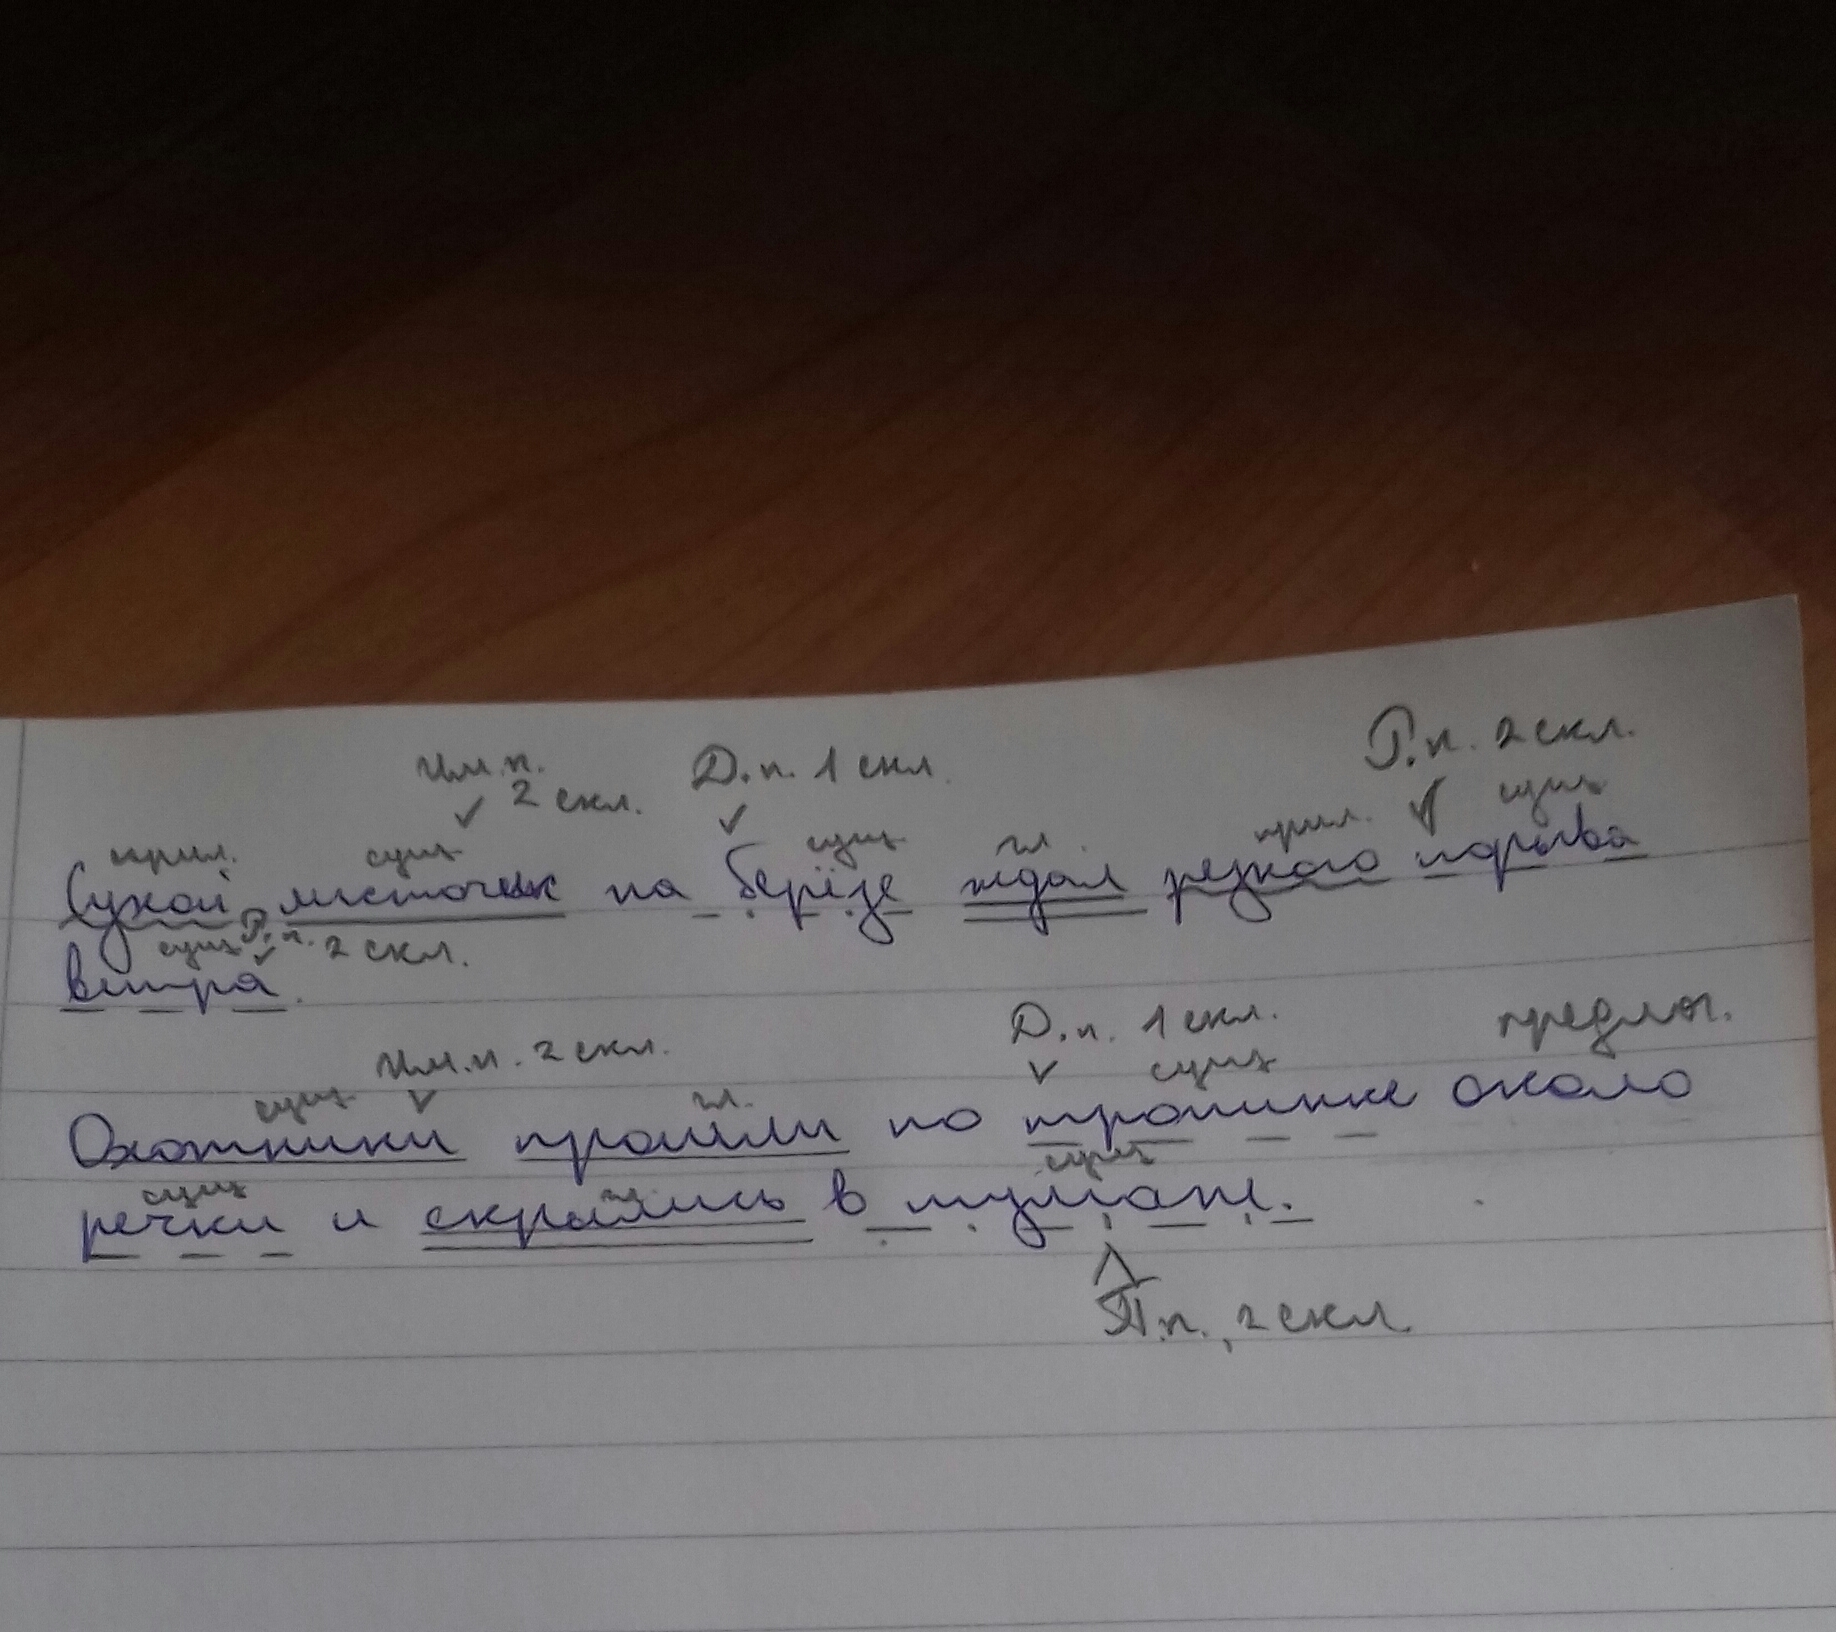 Им.п. Д.п. 1 скл. Р.п. 2 скл.
2 скл.
прил. сущ сущ гл. прил. сущ
Сухой листочек на берёзе ждал резкого порыва
сущ Р.п. 2 скл.
ветра.
Им.п. 2 скл. Д.п. 1 скл. предлог.
сущ гл. сущ
Охотники прошли по тропинке около
сущ гл. сущ
речки и скрылись в тумане.
П.п., 2 скл.